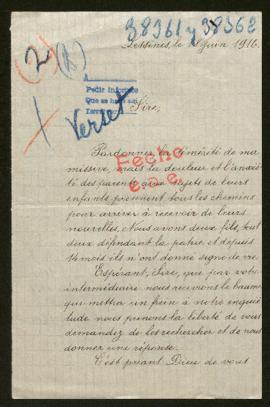 38361 y 38362
Lessines, le Juin 1916.
(2) (R)
Pedir informe
Que se
Sire,
Verset
Pardonnez la témérité de ma
missive, mais la douleur et l'anxié
té des parents aux sujets de leurs
enfants prennent tous les chemins
pour arriver à recevoir de leurs
nouvelles. Nous avons deux fils, tout
deux défendant la patrie et depuis
14 mois ils n'ont donné signe de vie.
Fecho
Espérant, Sire, que par votre
intermédiaire nous recevions le baume
qui mettra un frein à notre inquié
tude nous prenons la liberté de vous
demandez de les rechercher et de nous
donner une réponse.
C'est priant Dieu de vous